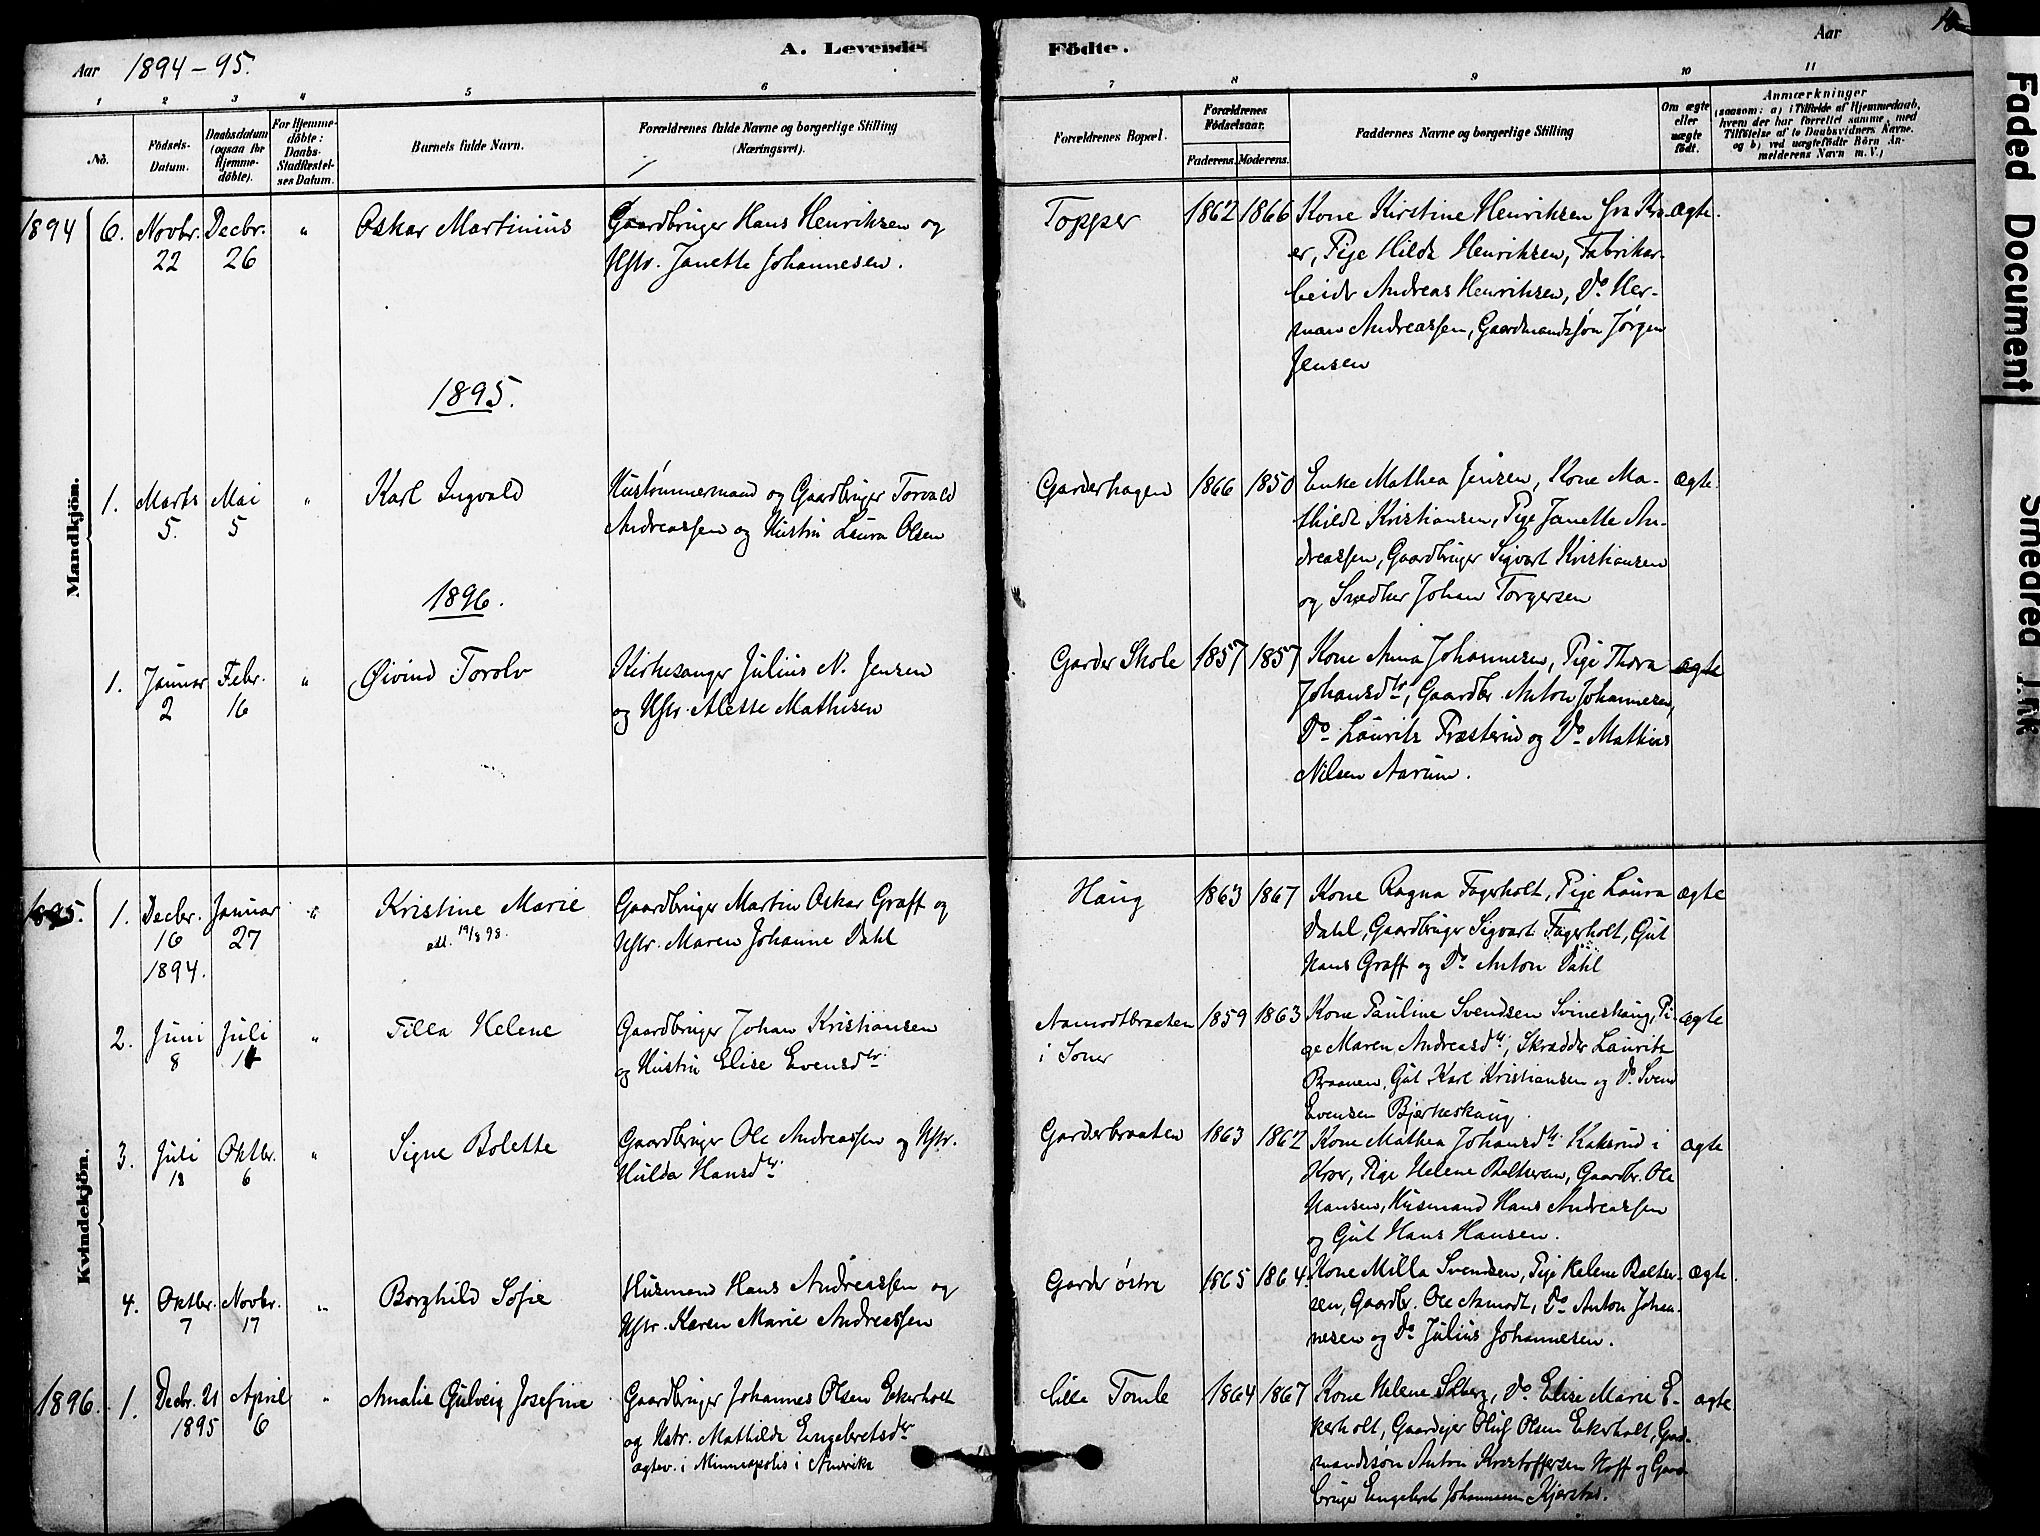 Aar 1894-95.
A. Levende
Födte.
Aar
1 2 3 4 5 6 7 8 9 10 11
No.
Födsels-Datum.
Daabsdatum (ogsaa for Hjemme-döbte).
For Hjemme-döbte: Daabs-Stadfæstel-ses Datum.
Barnets fulde Navn.
Forældrenes fulde Navne og borgerlige Stilling
(Næringsvei).
Forældrenes Bopæl.
Forældrenes Födselsaar.
Faderens. Moderens.
Faddernes Navne og borgerlige Stilling
Om ægte eller uægte födt.
Anmærkninger
(saasom: a) i Tilfælde af Hjemmedaab,
hvem der har forrettet samme, med
Tilföielse af to Daabsvidners Navne.
og b) ved uægtefödte Börn An-
melderens Navn m. V.)
Mandkjön.
1894 6. Novbr. 22 Decbr. 26 " Oskar Martinius
Gaardbruger Hans Henriksen og
Hstr. Janette Johannesen.
Topper 1862 1866
Kone Kirstine Henriksen fra Kro-
er, Pige Hilda Henriksen, Fabrikar-
beider Andreas Henriksen, Do. Her-
man Andreassen, Gaardmandssøn Jørgen
Jensen
ægte.
1895.
1. Marts 5. Mai 5 " Karl Ingvald
Hustømmermand og Gaardbruger Torvald
Andreassen og Hustru Laura Olsen
Garderhagen 1866 1850
Enke Mathea Jensen, Kone Ma-
thilde Kristiansen, Pige Janette An-
dreassen, Gaardbruger Sigvart Kristiansen
og Snedker Johan Torgersen
ægte.
1896.
1. Januar 2 Febr. 16 " Øivind Torolv
Kirkesanger Julius N. Jensen
og Hstr. Alette Mathisen
Garder Skole 1857 1857
Kone Anna Johannesen, Pige Thora
Johansdtr, Gaardbr. Anton Johannesen,
Do. Laurits Præsterud og Do. Mathias
Nilsen Aarum.
ægte
Kvindekjön.
1895. 1. Decbr. 16 1894. Januar 27 " Kristine Marie
19/8 98.
Gaardbruger Martin Oskar Graff og
Hstr. Maren Johanne Dahl
Haug 1863 1867
Kone Ragna Fagerholt, Pige Laura
Dahl, Gaardbruger Sigvart Fagerholt, Gut
Hans Graff og Do. Anton Dahl
ægte
2. Juni 8 Juli 14 " Tilla Helene
Gaardbruger Johan Kristiansen
og Hustru Elise Evensdtr.
Aamodtbraaten
i Soner
1859 1863
Kone Pauline Svendsen Svineskaug, Pi-
ge Maren Andreasdtr, Skrædder Laurits
Braanen, Gut Karl Kristiansen og Do. Svend
Evensen Bjerkeskaug.
ægte
3. Juli 18 Oktbr. 6 " Signe Bolette
Gaardbruger Ole Andreassen og Hstr.
Hulda Hansdtr.
Garderbraaten 1863 1862
Kone Mathea Johansdtr. Kakerud i
Kroer, Pige Helene Baltsersen, Gaardbr. Ole
Hansen, Husmand Hans Andreassen
og Gut Hans Hansen.
ægte
4. Oktbr. 7 Novbr. 17 " Borghild Sofie
Husmand Hans Andreassen og
Hstr. Karen Marie Andreassen
Garder østre 1865 1864.
Kone Milla Svendsen, Pige Helene Balter-
sen, Gaardbr. Ole Aamodt, Do. Anton Johan-
nesen og Do. Julius Johannesen.
ægte.
1896. 1. Decbr. 21 1895 April 6 " Amalie Gulveig Josefine
Gaardbruger Johannes Olsen Ekerholt
og Hstr. Mathilde Engebretsdtr
ægtev. i Minneapolis i Amerika
lille Tomle 1864 1867
Kone Helene Solberg, Do. Elise Marie E-
kerholt, Gaardejer Oluf Olsen Ekerholt, Gaard-
mandssøn Anton Kristoffersen Hoff og Gaard-
bruger Engebret Johannesen Kjerstad.
ægte
Faded Document
Smeared Ink